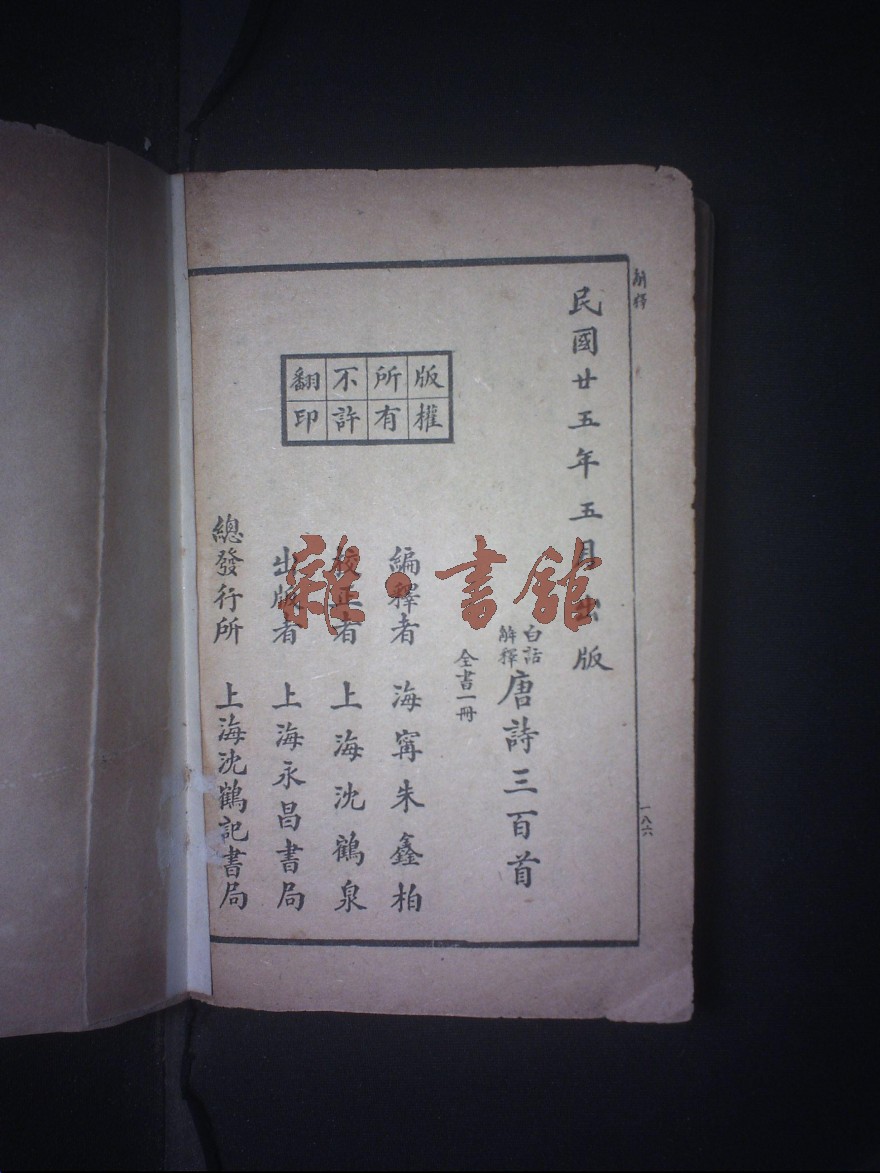 解釋
民國廿五年五月出版
白話
解釋
唐詩三百首
全書一冊
版權
所有
不許
翻印
編釋者 海寗朱鑫柏
校正者 上海沈鶴泉
出版者 上海永昌書局
總發行所 上海沈鶴記書局
一八六
雜·書館